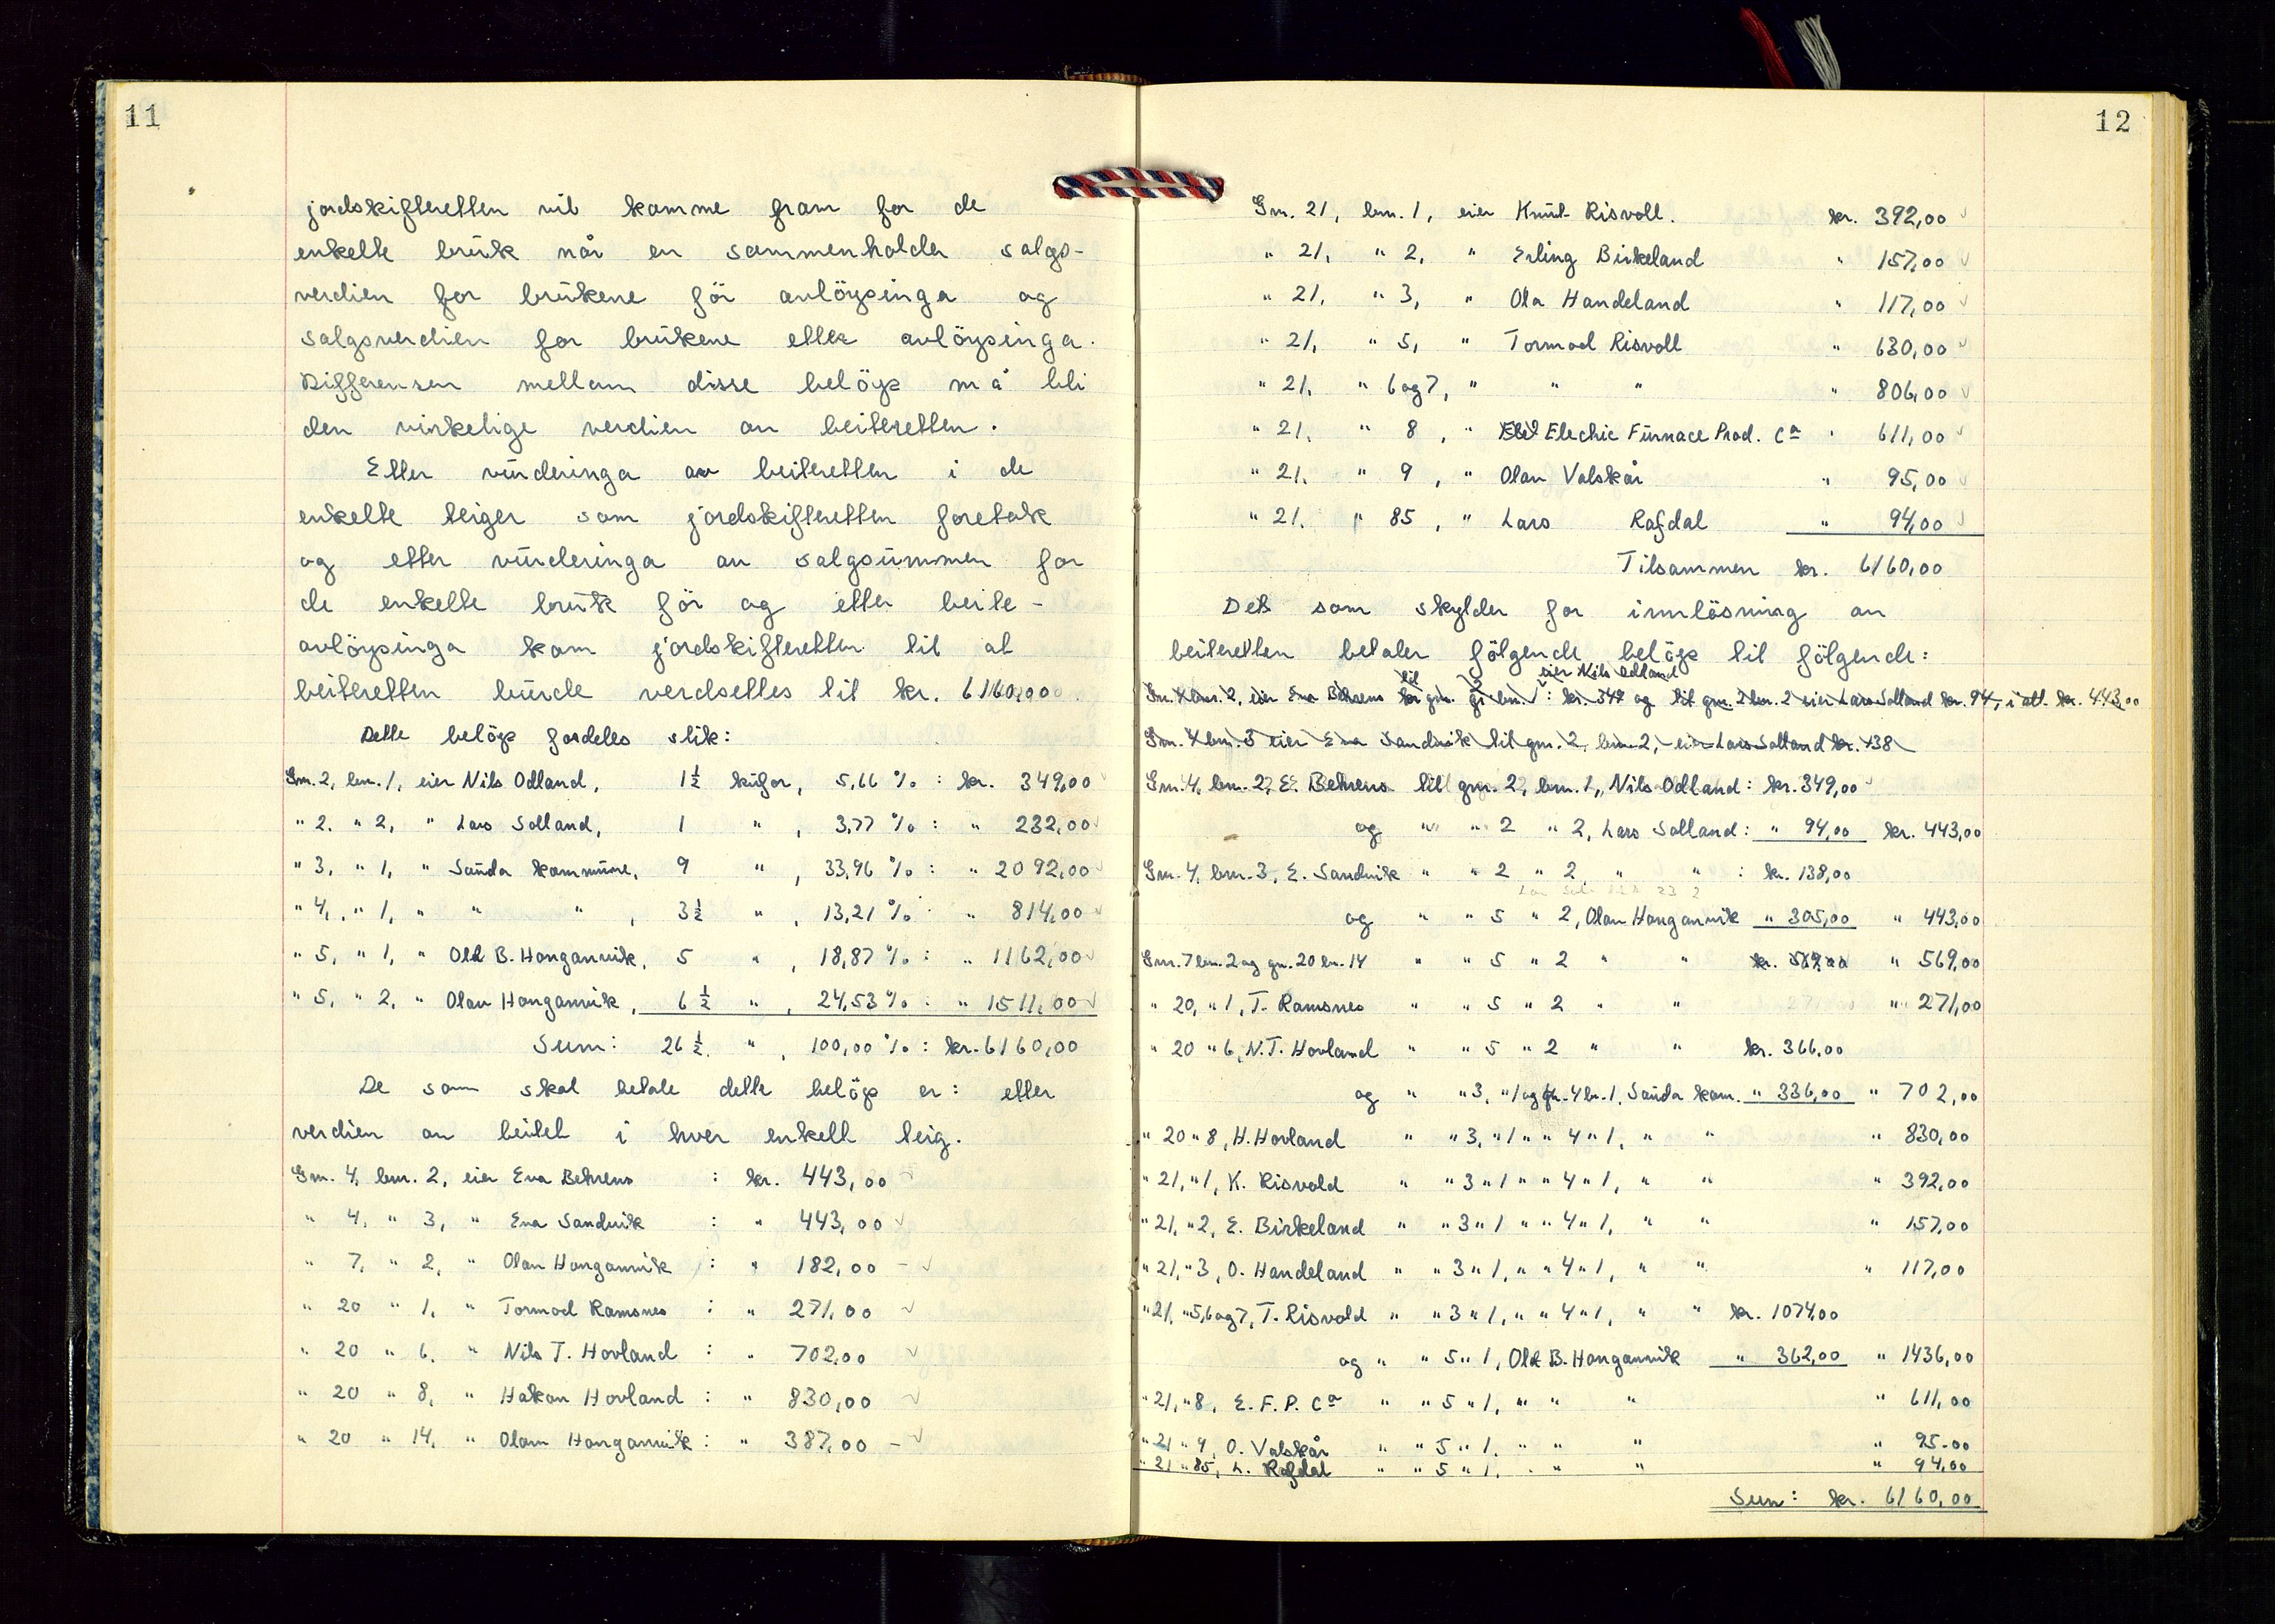 11
jordskifteretten vil komme fram for de
enkelte brŭk når en sammenholder salgs-
verdien for brŭkene för avlöysinga og
salgsverdien for brŭkene etter avlöysinga.
Differensen mellom disse belöp må bli
den virkelige verdien av beiteretten.
Etter vŭrderinga av beiteretten i de
enkelte teiger som jordskifteretten foretok
og etter vŭrderinga av salgsŭmmen for
de enkelte brŭk för og etter beite-
avlöysinga kom jordskifteretten til at
beiteretten bŭrde verdsettes til kr. 6160,00.
Dette belöp fordeles slik:
Gnr. 2, bnr. 1, eier Nils Odland, 1½ kŭfor, 5,66 % : kr. 349,00
" 2. " 2, " Lars Solland, 1 " , 3,77 % : " 232,00
" 3, " 1, " Saŭda kommŭne, 9 " , 33,96 % : " 2092,00
" 4, " 1, " " " , 3½ " , 13,21 % : " 814,00
" 5, " 1, " Old B. Honganvik, 5 " , 18,87 % : " 1162,00
" 5, " 2, " Olav Honganvik, 6½ " , 24,53 % : " 1511,00
Sum: 26½ " , 100,00 % : kr. 6160,00
De som skal betale dette belöp er: etter
verdien av beitet i hver enkelt teig.
Gnr. 4, bnr. 2, eier Eva Behrens : kr. 443,00
" 4, " 3, " Eva Sandvik : " 443,00
" 7, " 2, " Olav Honganvik : " 182,00 -
" 20 " 1, " Tormod Ramsnes : " 271,00
" 20 " 6, " Nils T. Hovland : " 702,00
" 20 " 8, " Håkon Hovland : " 830,00
" 20 " 14, " Olav Honganvik : " 387,00 -
12
Gnr. 21, bnr. 1, eier Knŭt Risvoll. kr. 392,00
" 21, " 2, " Erling Birkeland " 157,00
" 21, " 3, " Ola Handeland " 117,00
" 21, " 5, " Tormod Risvoll " 630,00
" 21, " 6 og 7, " " " " 806,00
" 21, " 8, " Electric Fŭrnace Prod. Cº " 611,00
" 21, " 9, " Olav Valskår " 95,00
" 21, " 85, " Lars Rafdal " 94,00
Tilsammen kr. 6160,00
Det som skylder for innlösning av
beiteretten betaler fölgende belöp til fölgende:
eier Nils Odland
Gnr. 4 bnr. 2, eier Eva Behrens til gnr. bnr. 1: kr. 349 og til gnr. 2 bnr. 2 eier Lars Solland kr. 94, i alt kr. 443,00
Gnr. 4 bnr. 3 eier Eva Sandvik til gnr. 2, bnr. 2, eier Lars Solland kr. 138
Gnr. 4, bnr. 2, E. Behrens til gnr. 2, bnr. 1, Nils Odland: kr. 349,00
og " " 2 " 2, Lars Solland: " 94,00 kr. 443,00
Gnr. 4, bnr. 3, E. Sandvik " " 2 " 2 " " : kr. 138,00
og " " 5 " 2, Olav Honganvik " 305,00 " 443,00
Gnr. 7 bnr. 2 og gnr. 20 bnr. 14 " " 5 " 2 " " kr. 569,00 " 569,00
" 20, " 1, T. Ramsnes " " 5 " 2 " " " 271,00
" 20 " 6, N.T. Hovland " " 5 " 2 " " kr. 366,00
og " " 3, " 1 og gnr. 4 bnr. 1, Saŭda kom. " 336,00 " 702,00
" 20 " 8, H. Hovland " " 3, " 1 " " 4 " 1, " " " 830,00
" 21, " 1, K. Risvold " " 3 " 1 " " 4 " 1, " " " 392,00
" 21, " 2, E. Birkeland " " 3 " 1 " " 4 " 1, " " " 157,00
" 21, " 3, O. Handeland " " 3 " 1, " " 4 " 1, " " " 117,00
" 21, " 5, 6 og 7, T. Risvold " " 3 " 1, " " 4 " 1, " " kr. 1074,00
og " " 5 " 1, Old B. Honganvik " 362,00 " 1436,00
" 21, " 8, E. F. P. Cº " " 5 " 1, " " " " 611,00
" 21 " 9, O. Valskår " " 5 " 1, " " " " 95.00
" 21 " 85, L. Rafdal " " 5 " 1, " " " " 94,00
Sum: kr. 6160,00